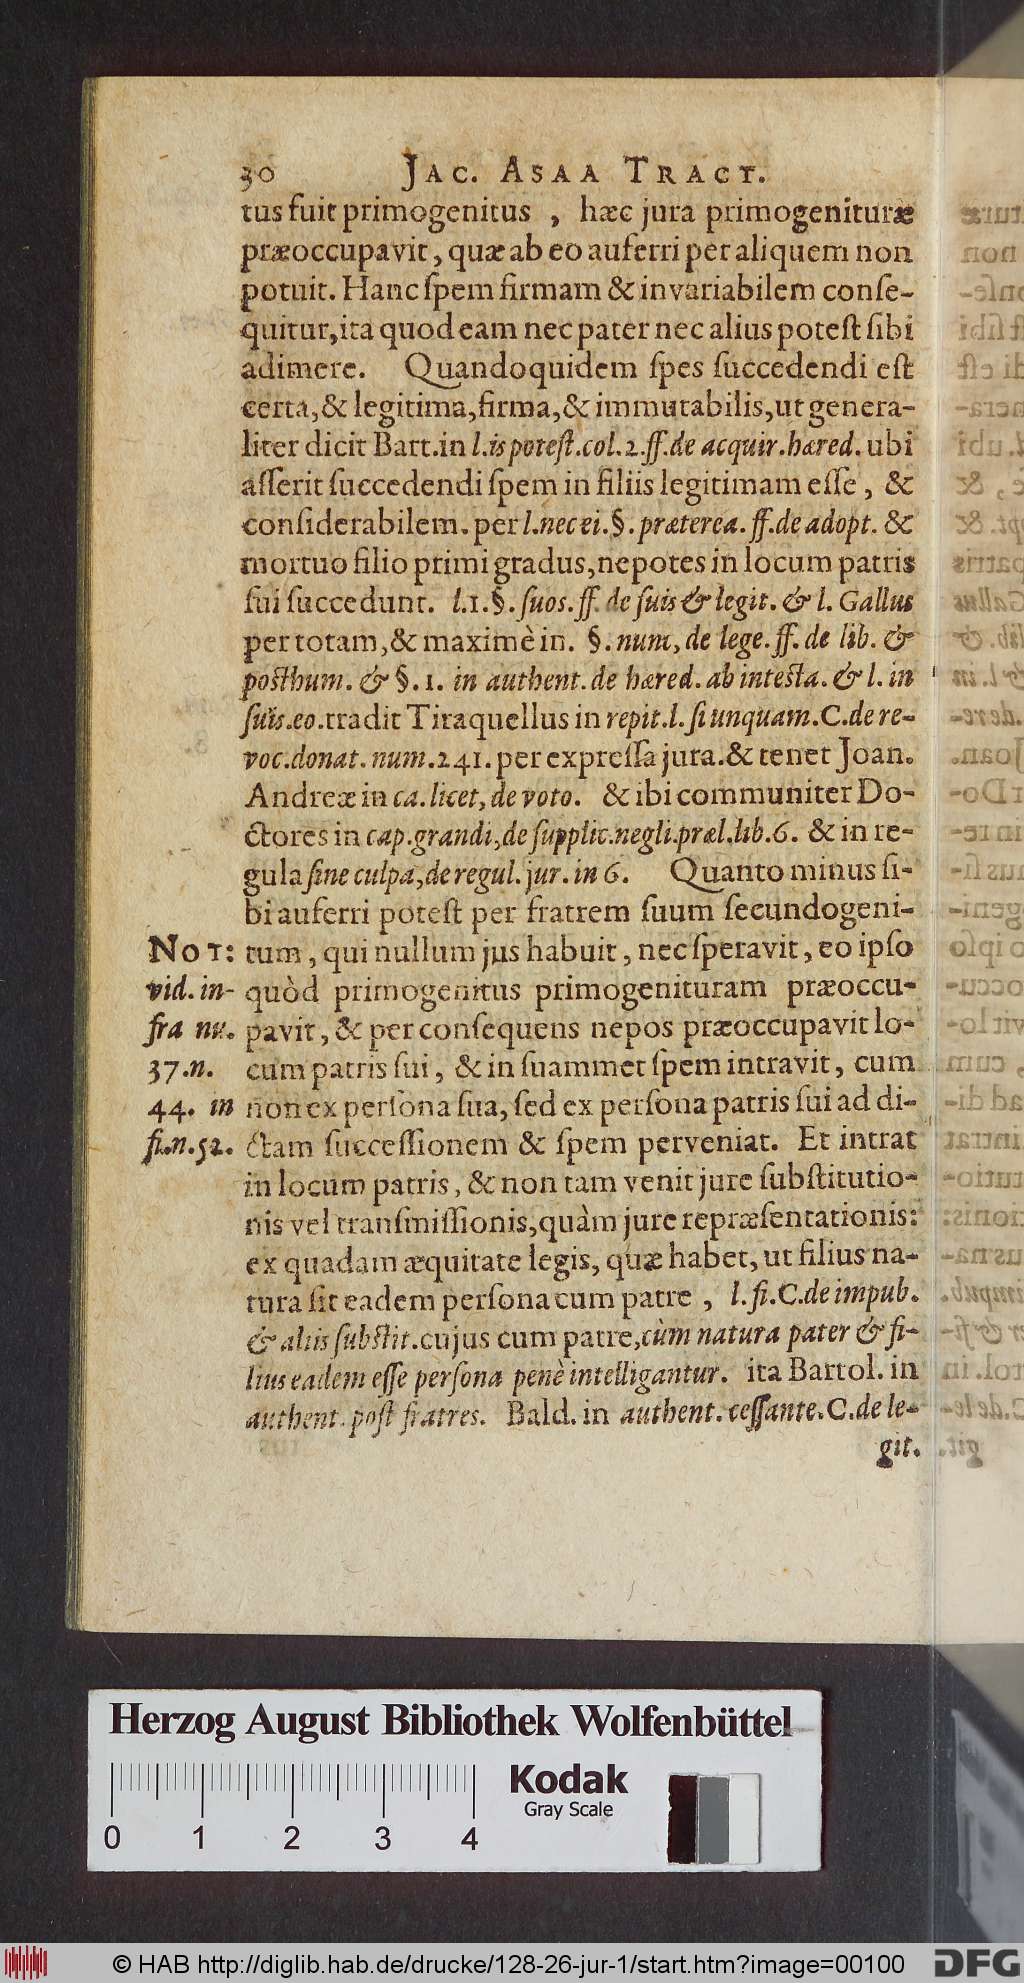 30 JAC. ASAA TRACT.
tus fuit primogenitus , hæc jura primogenituræ
præoccupavit, quæ ab eo auferri per aliquem non
potuit. Hanc ſpem firmam & invariabilem conſe-
quitur, ita quod eam nec pater nec alius poteſt ſibi
adimere. Quandoquidem ſpes ſuccedendi eſt
certa, & legitima, firma, & immutabilis, ut genera-
liter dicit Bart. in l. is poteſt. col. 2. ff. de acquir. hæred. ubi
aſſerit ſuccedendi ſpem in filiis legitimam eſſe , &
conſiderabilem. per l. nec ei. §. præterea. ff. de adopt. &
mortuo filio primi gradus, nepotes in locum patris
ſui ſuccedunt. l. 1. §. ſuos. ff. de ſuis & legit. & l. Gallus
per totam, & maximè in. §. nunc, de lege. ff. de lib. &
posthum. & §. 1. in authent. de hæred. ab intesta. & l. in
ſuis. eo. tradit Tiraquellus in repit. l. ſi unquam. C. de re-
voc. donat. num. 241. per expreſſa jura. & tenet Joan.
Andreæ in ca. licet, de voto. & ibi communiter Do-
ctores in cap. grandi, de ſupplic. negli. præl. lib. 6. & in re-
gula ſine culpa, de regul. jur. in 6. Quanto minus ſi-
bi auferri poteſt per fratrem ſuum ſecundogeni-
NOT: tum , qui nullum jus habuit , nec ſperavit, eo ipſo
vid. in- quòd primogenitus primogenituram præoccu-
fra nu. pavit, & per conſequens nepos præoccupavit lo-
37. n. cum patris ſui , & in ſuammet ſpem intravit, cum
44. in non ex perſona ſua, ſed ex perſona patris ſui ad di-
fi. n. 52. ctam ſucceſſionem & ſpem perveniat. Et intrat
in locum patris, & non tam venit jure ſubſtitutio-
nis vel tranſmiſſionis, quàm jure repræſentationis:
ex quadam æquitate legis, quæ habet, ut filius na-
tura ſit eadem perſona cum patre , l. fi. C. de impub.
& aliis ſubſtit. cujus cum patre, cùm natura pater & fi-
lius eadem eſſe perſona penè intelligantur. ita Bartol. in
authent. poſt fratres. Bald. in authent. ceſſante. C. de le-
git.
Herzog August Bibliothek Wolfenbüttel
Kodak
Gray Scale
0 1 2 3 4
© HAB http://diglib.hab.de/drucke/128-26-jur-1/start.htm?image=00100
DFG